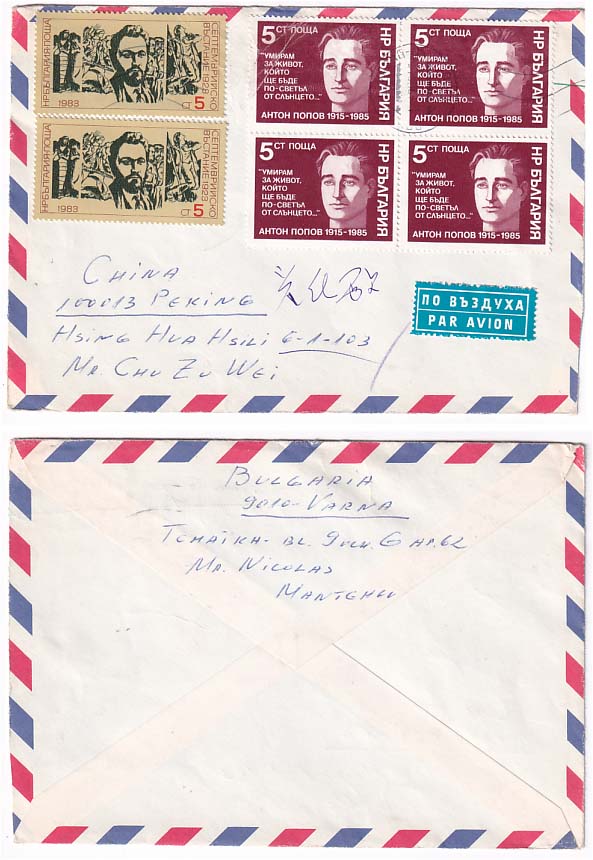 НР БЪЛГАРИЯ·ПОЩА
1983
СЕПТЕМВРИЙСКО
ВЪСТАНИЕ 1923
СТ 5
НР БЪЛГАРИЯ·ПОЩА
1983
СЕПТЕМВРИЙСКО
ВЪСТАНИЕ 1923
СТ 5
5 СТ ПОЩА
"УМИРАМ
ЗА ЖИВОТ,
КОЙТО
ЩЕ БЪДЕ
ПО-СВЕТЪЛ
ОТ СЛЪНЦЕТО..."
АНТОН ПОПОВ 1915-1985
НР БЪЛГАРИЯ
5 СТ ПОЩА
"УМИРАМ
ЗА ЖИВОТ,
КОЙТО
ЩЕ БЪДЕ
ПО-СВЕТЪЛ
ОТ СЛЪНЦЕТО..."
АНТОН ПОПОВ 1915-1985
НР БЪЛГАРИЯ
5 СТ ПОЩА
"УМИРАМ
ЗА ЖИВОТ,
КОЙТО
ЩЕ БЪДЕ
ПО-СВЕТЪЛ
ОТ СЛЪНЦЕТО..."
АНТОН ПОПОВ 1915-1985
НР БЪЛГАРИЯ
5 СТ ПОЩА
"УМИРАМ
ЗА ЖИВОТ,
КОЙТО
ЩЕ БЪДЕ
ПО-СВЕТЪЛ
ОТ СЛЪНЦЕТО..."
АНТОН ПОПОВ 1915-1985
НР БЪЛГАРИЯ
CHINA
100013 PEKING
HSING HUA HSILI 6-1-103
MR. CHU ZU WEI
ПО ВЪЗДУХА
PAR AVION
BULGARIA
9010-VARNA
TCHAÏKA- BL. 9
MR. NICOLAS